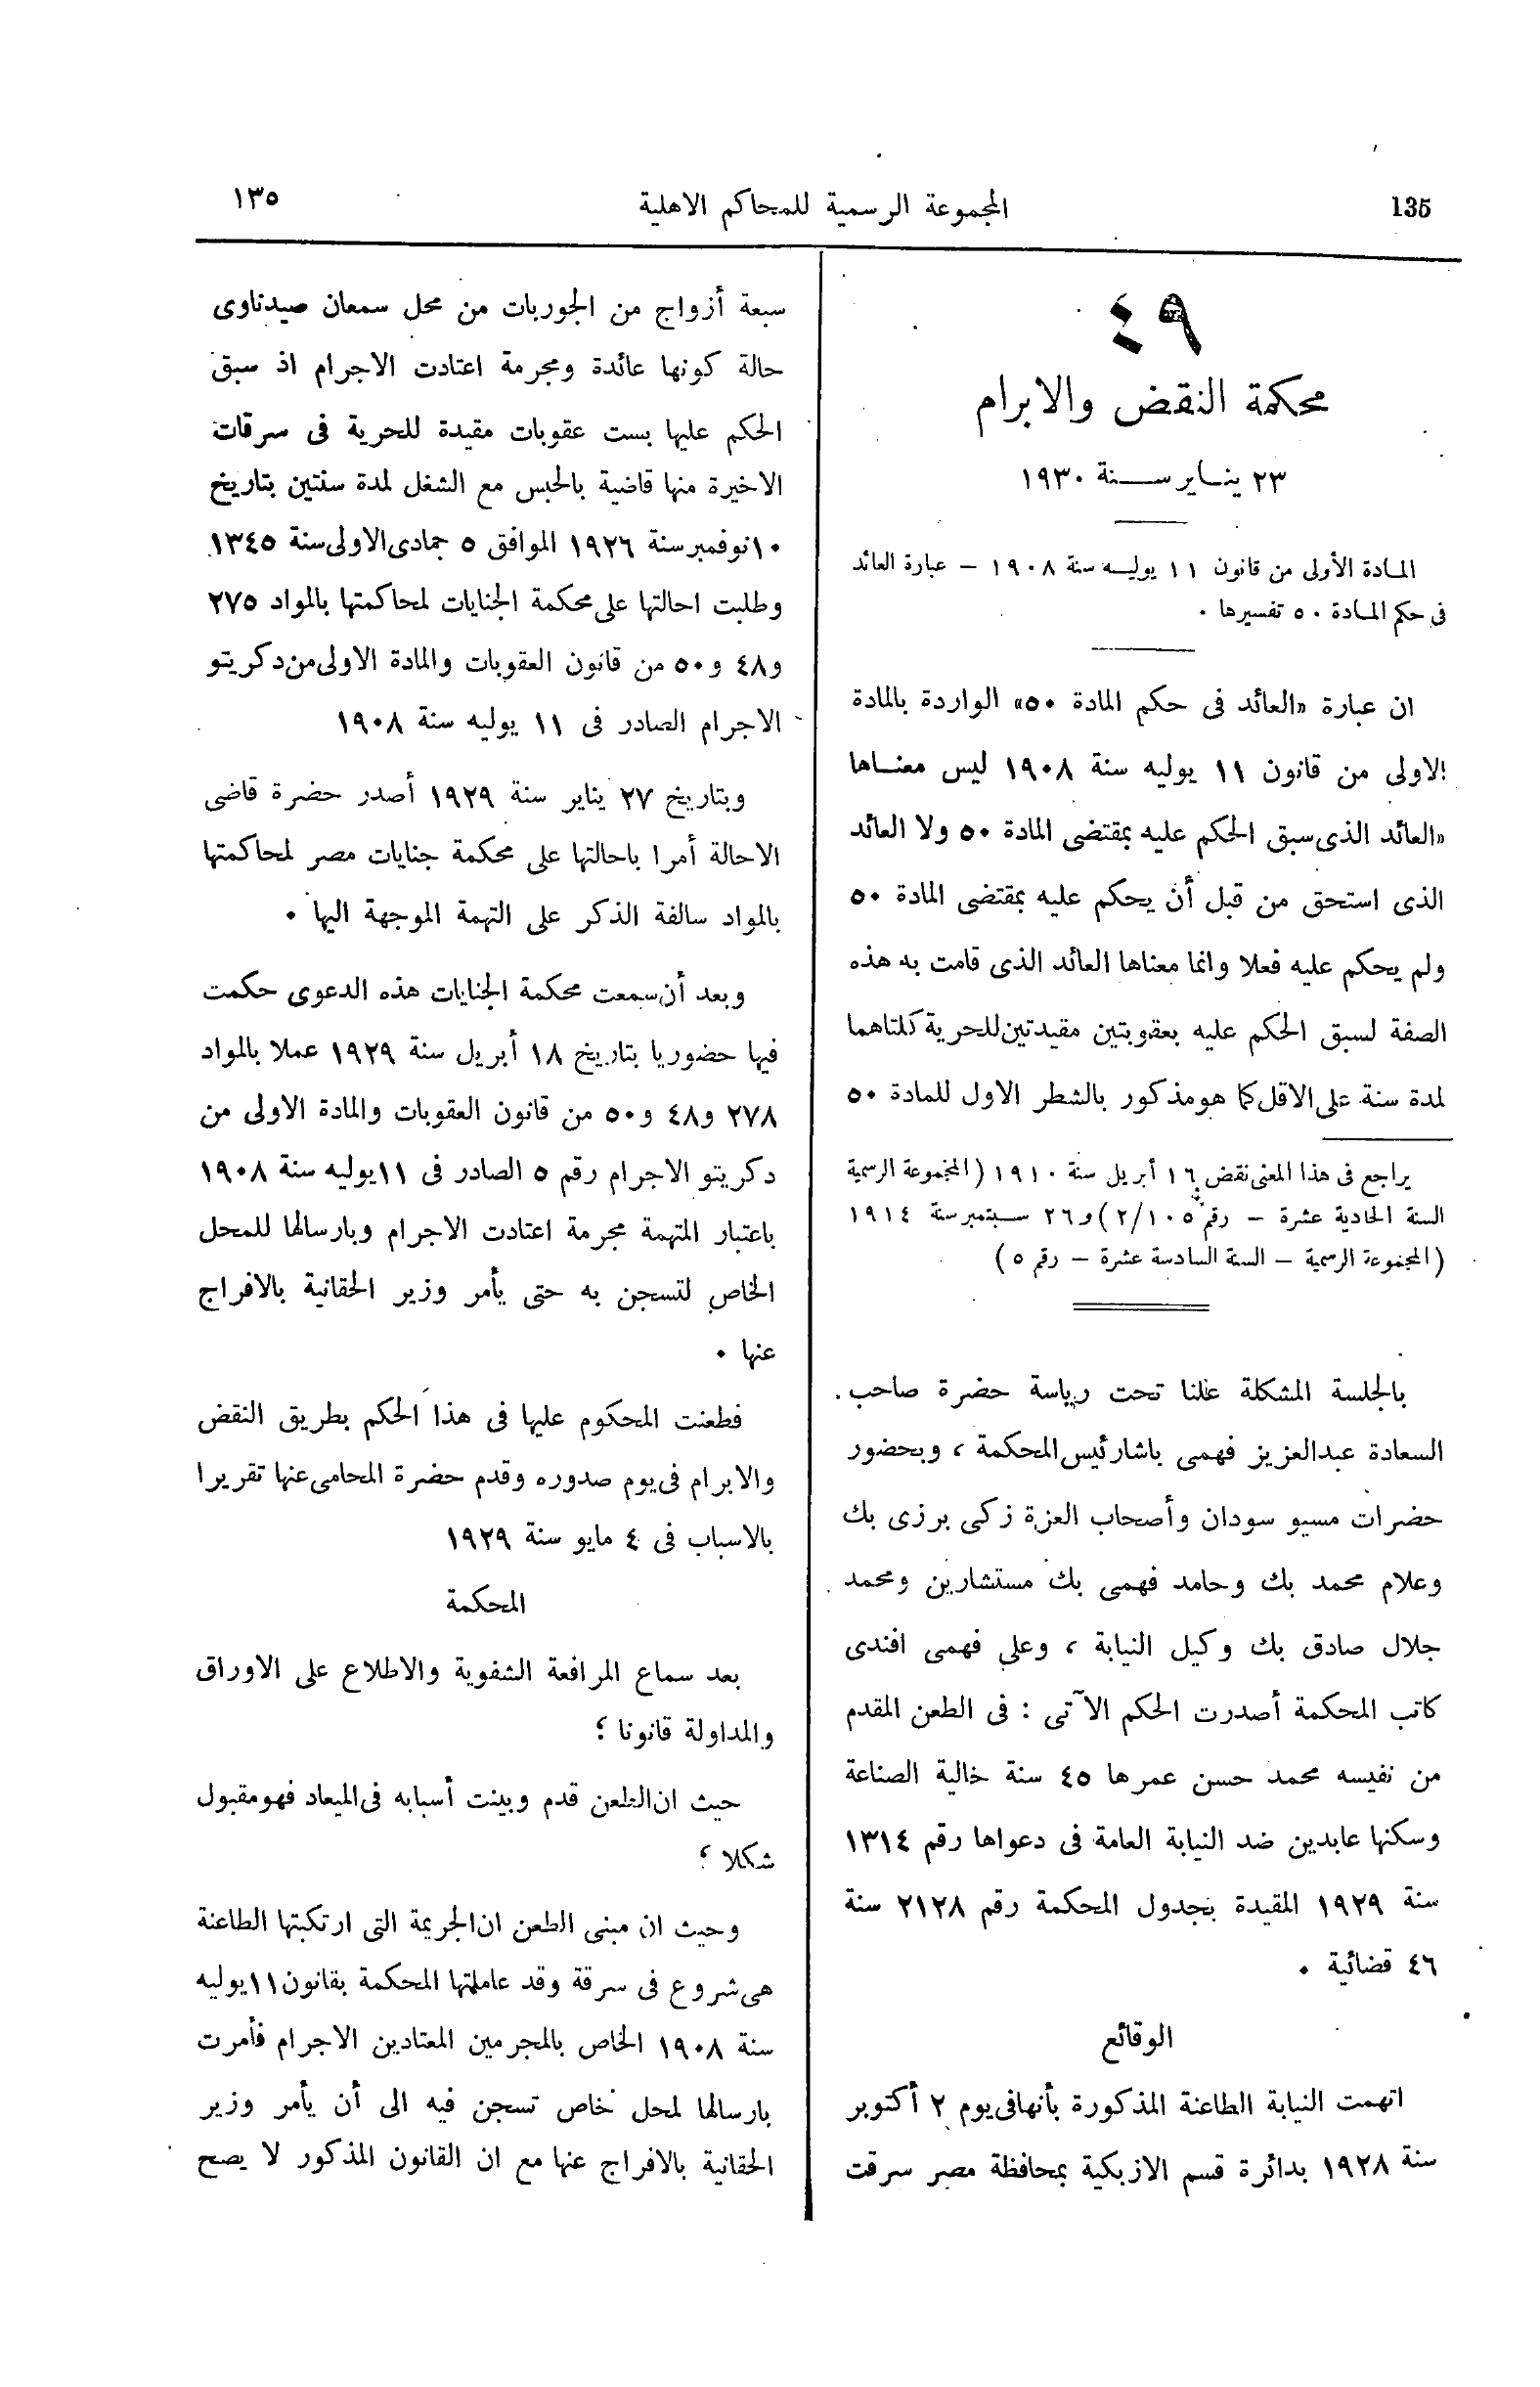 135
المجموعة الرسمية للمحاكم الاهلية
١٣٥
٤٩
محكمة النقض والابرام
٢٣ ينــاير ســـنة ١٩٣٠
المـادة الأولى من قانون ١١ يوليــه سنة ١٩٠٨ – عبارة العائد
فى حكم المـادة ٥٠ تفسيرها ٠
ان عبارة «العائد فى حكم المادة ٥٠» الواردة بالمادة
الاولى من قانون ١١ يوليه سنة ١٩٠٨ ليس معنــاها
«العائد الذى سبق الحكم عليه بمقتضى المادة ٥٠ ولا العائد
الذى استحق من قبل أن يحكم عليه بمقتضى المادة ٥٠
ولم يحكم عليه فعلا وانما معناها العائد الذى قامت به هذه
الصفة لسبق الحكم عليه بعقوبتين مقيدتين للحرية كلتاهما
لمدة سنة على الاقل كما هو مذكور بالشطر الاول للمادة ٥٠
يراجع فى هذا المعنى نقض ١٦ أبريل سنة ١٩١٠ (المجموعة الرسمية
السنة الحادية عشرة – رقم ٢/١٠٥) و٢٦ ســبتمبر سنة ١٩١٤
(المجموعة الرسمية – السنة السادسة عشرة – رقم ٥)
بالجلسة المشكلة علنا تحت رياسة حضرة صاحب
السعادة عبد العزيز فهمى باشا رئيس المحكمة ، وبحضور
حضرات مسيو سودان وأصحاب العزة زكى برزى بك
وعلام محمد بك وحامد فهمى بك مستشارين ومحمد
جلال صادق بك وكيل النيابة ، وعلى فهمى افندى
كاتب المحكمة أصدرت الحكم الآتى : فى الطعن المقدم
من نفيسه محمد حسن عمرها ٤٥ سنة خالية الصناعة
وسكنها عابدين ضد النيابة العامة فى دعواها رقم ١٣١٤
سنة ١٩٢٩ المقيدة بجدول المحكمة رقم ٢١٢٨ سنة
٤٦ قضائية ٠
الوقائع
اتهمت النيابة الطاعنة المذكورة بأنها فى يوم ٢ أكتوبر
سنة ١٩٢٨ بدائرة قسم الازبكية بمحافظة مصر سرقت
سبعة أزواج من الجوربات من محل سمعان صيدناوى
حالة كونها عائدة ومجرمة اعتادت الاجرام اذ سبق
الحكم عليها بست عقوبات مقيدة للحرية فى سرقات
الاخيرة منها قاضية بالحبس مع الشغل لمدة سنتين بتاريخ
١٠ نوفمبر سنة ١٩٢٦ الموافق ٥ جمادى الاولى سنة ١٣٤٥
وطلبت احالتها على محكمة الجنايات لمحاكمتها بالمواد ٢٧٥
و٤٨ و٥٠ من قانون العقوبات والمادة الاولى من دكريتو
الاجرام الصادر فى ١١ يوليه سنة ١٩٠٨
وبتاريخ ٢٧ يناير سنة ١٩٢٩ أصدر حضرة قاضى
الاحالة أمرا باحالتها على محكمة جنايات مصر لمحاكمتها
بالمواد سالفة الذكر على التهمة الموجهة اليها ٠
وبعد أن سمعت محكمة الجنايات هذه الدعوى حكمت
فيها حضوريا بتاريخ ١٨ أبريل سنة ١٩٢٩ عملا بالمواد
٢٧٨ و٤٨ و٥٠ من قانون العقوبات والمادة الاولى من
دكريتو الاجرام رقم ٥ الصادر فى ١١ يوليه سنة ١٩٠٨
باعتبار المتهمة مجرمة اعتادت الاجرام وبارسالها للمحل
الخاص لتسجن به حتى يأمر وزير الحقانية بالافراج
عنها ٠
فطعنت المحكوم عليها فى هذا الحكم بطريق النقض
والابرام فى يوم صدوره وقدم حضرة المحامى عنها تقريرا
بالاسباب فى ٤ مايو سنة ١٩٢٩
المحكمة
بعد سماع المرافعة الشفوية والاطلاع على الاوراق
والمداولة قانونا ؛
حيث ان الطعن قدم وبينت أسبابه فى الميعاد فهو مقبول
شكلا ؛
وحيث ان مبنى الطعن ان الجريمة التى ارتكبتها الطاعنة
هى شروع فى سرقة وقد عاملتها المحكمة بقانون ١١ يوليه
سنة ١٩٠٨ الخاص بالمجرمين المعتادين الاجرام فأمرت
بارسالها لمحل خاص تسجن فيه الى أن يأمر وزير
الحقانية بالافراج عنها مع ان القانون المذكور لا يصح